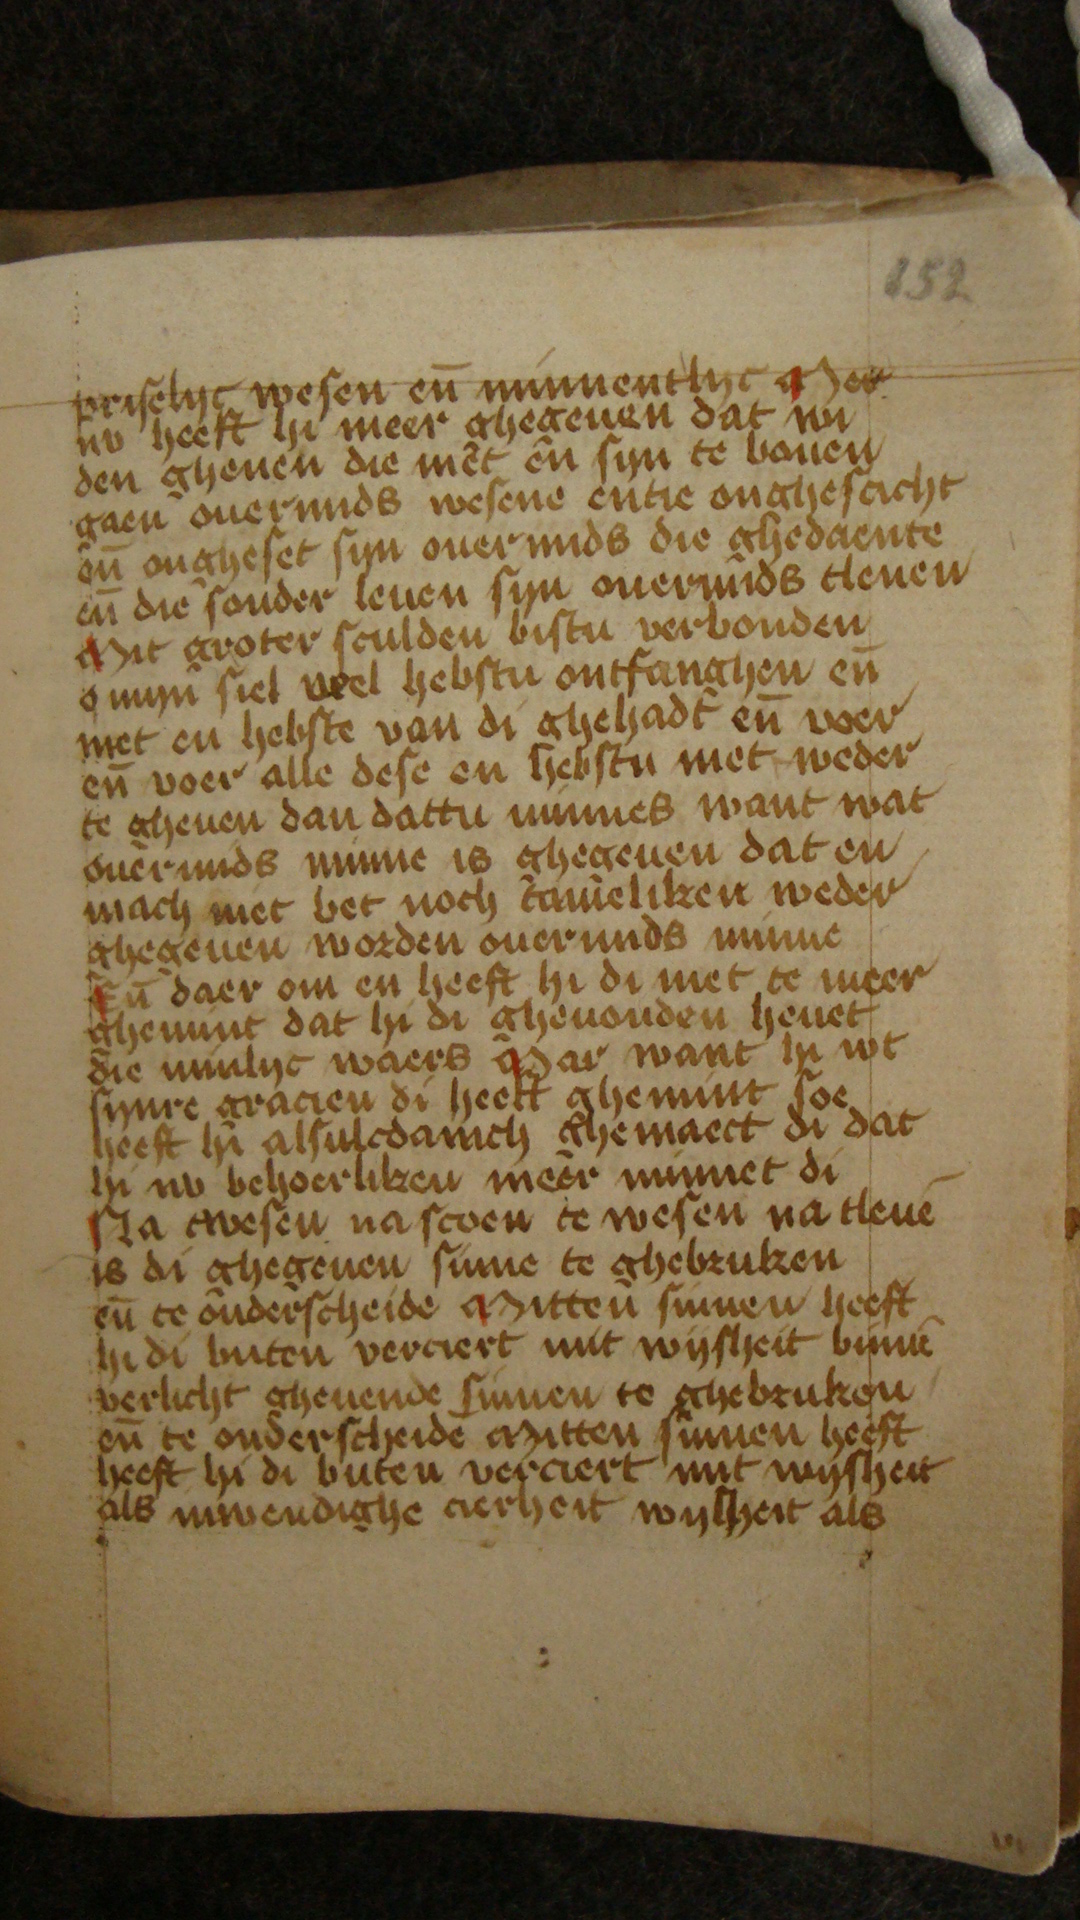 152
priselijc wesen en̄ minnentlijc Mer
nv heeft hi meer ghegeuen dat wi
den ghenen die niet en̄ sijn te bouen
gaen ouermids wesene entie onghescicht
en̄ ongheset sijn ouermids die ghedaente
en̄ die sonder leuen sijn ouermids tleuen
Mit groter sculden bistu verbonden
o mijn siel veel hebstu ontfanghen en̄
niet en hebste van di ghehadt en̄ voer
en̄ voer alle dese en hebstu niet weder
te gheuen dan dattu minnes want wat
ouermids minne is ghegeuen dat en
mach niet bet noch tameliken weder
ghegeuen worden ouermids minne
En̄ daer om en heeft hi di niet te meer
ghemint dat hi di gheuonden heuet
die minlijc waers Mar want hi wt
sijnre gracien di heeft ghemint soe
heeft hi alsulcdanich ghemaect di dat
hi nv behoerliken meer minnet di
Na twesen na scoen te wesen na tleuē
is di ghegeuen sinne te ghebruken
en̄ te onderscheide Mitten sinnen heeft
hi di buten verciert mit wijsheit binnē
verlicht gheuende sinnen te ghebruken
en̄ te onderscheide Mitten sinnen heeft
heeft hi di buten verciert mit wijsheit
als inwendighe cierheit wijsheit als